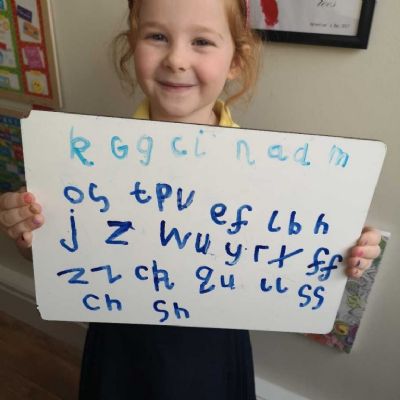 k G g c i n a d m
o s t p v e f l b h
j z w u y r x ff
zz ck qu ll ss
ch sh